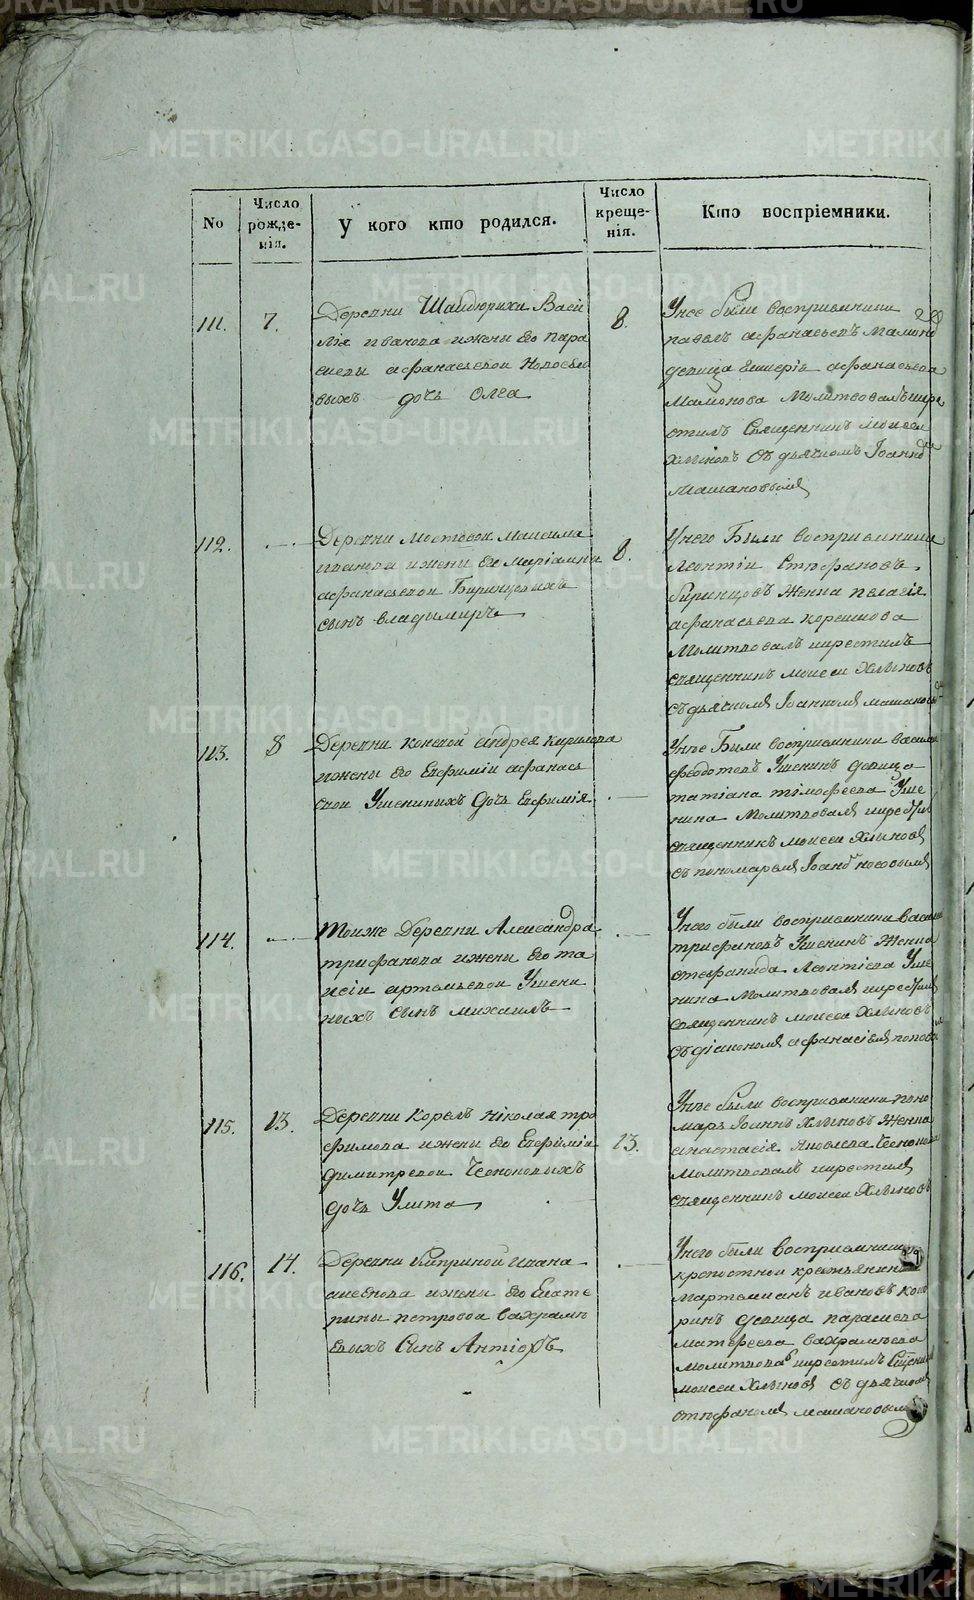 No
Число рожде-нія.
У кого кто родился.
Число креще-нія.
Кто воспріемники.
111.
7.
Деревни Шайдюрихи Васи
лія иванова ижены его пара
скевы афанасьевой Новосело
выхъ дочь Олга
8.
Унее были восприемники
павелъ афанасьевъ Мамонов
девица афанасьева
Мамонова Молитвовалъ икре
стилъ Священникъ моисеи
Хлыновъ Съ дьячкомъ Іоанно
Машановымъ
112.
Деревни мостовой Максима
иванова ижены его маріамны
афанасьевой Биринцовыхъ
сынъ владимиръ
8.
Унего Были восприемники
Леонтіи Стефановъ
бѣринцовъ Женка пелагія
афанасьева корешкова
Молитвовалъ икрестилъ
священникъ моисеи Хлыновъ
съ дьячкомъ Іоанномъ машановы
113.
8
Деревни конской андрея кирилова
ижены его Евфиміи афанась
евои Ушениныхъ дочь Евфимія
Унѣе Были восприемники васили
феодотовъ Ушенинъ девица
татіана тімофеева Уше
нина Молитвовалъ икрестил
священникъ моисеи Хлыновъ
съ пономаремъ Іоаномъ носовымъ
114.
Тоиже Деревни Александра
трифанова ижены его та
исіи артемьевой Ушени
ныхъ сынъ михаилъ
Унего были восприемники васили
трифановъ Ушенинъ Женка
стефанида Леонтіева Уше
нина Молитвовалъ икрестил
священникъ моисеи Хлыновъ
съ діакономъ афанасіемъ поповы
115.
13.
Деревни Корелъ ніколая тро
фимова ижены его Евфиміи
димитревои Чесноковыхъ
дочь Улита
13.
Унѣе были восприемники поно
марь Іоаннъ Хлыновъ Женка
анастасія Яковлева Чеснокова
молитвовалъ икрестилъ
священникъ моисеи Хлыновъ
116.
14.
Деревни киприной ивана
ижены его Екате
рины петровой вахрамѣ
евыхъ Сынъ Антіохъ
Унего были восприемники
крепостнои крестьянинъ
Мартемианъ ивановъ
девица параскева
матфеева вахрамѣева
молитвовалъ икрестилъ Сщенник
моисеи Хлыновъ съ дьячкомъ
стефаномъ машановымъ
METRIKI.GASO-URAL.RU